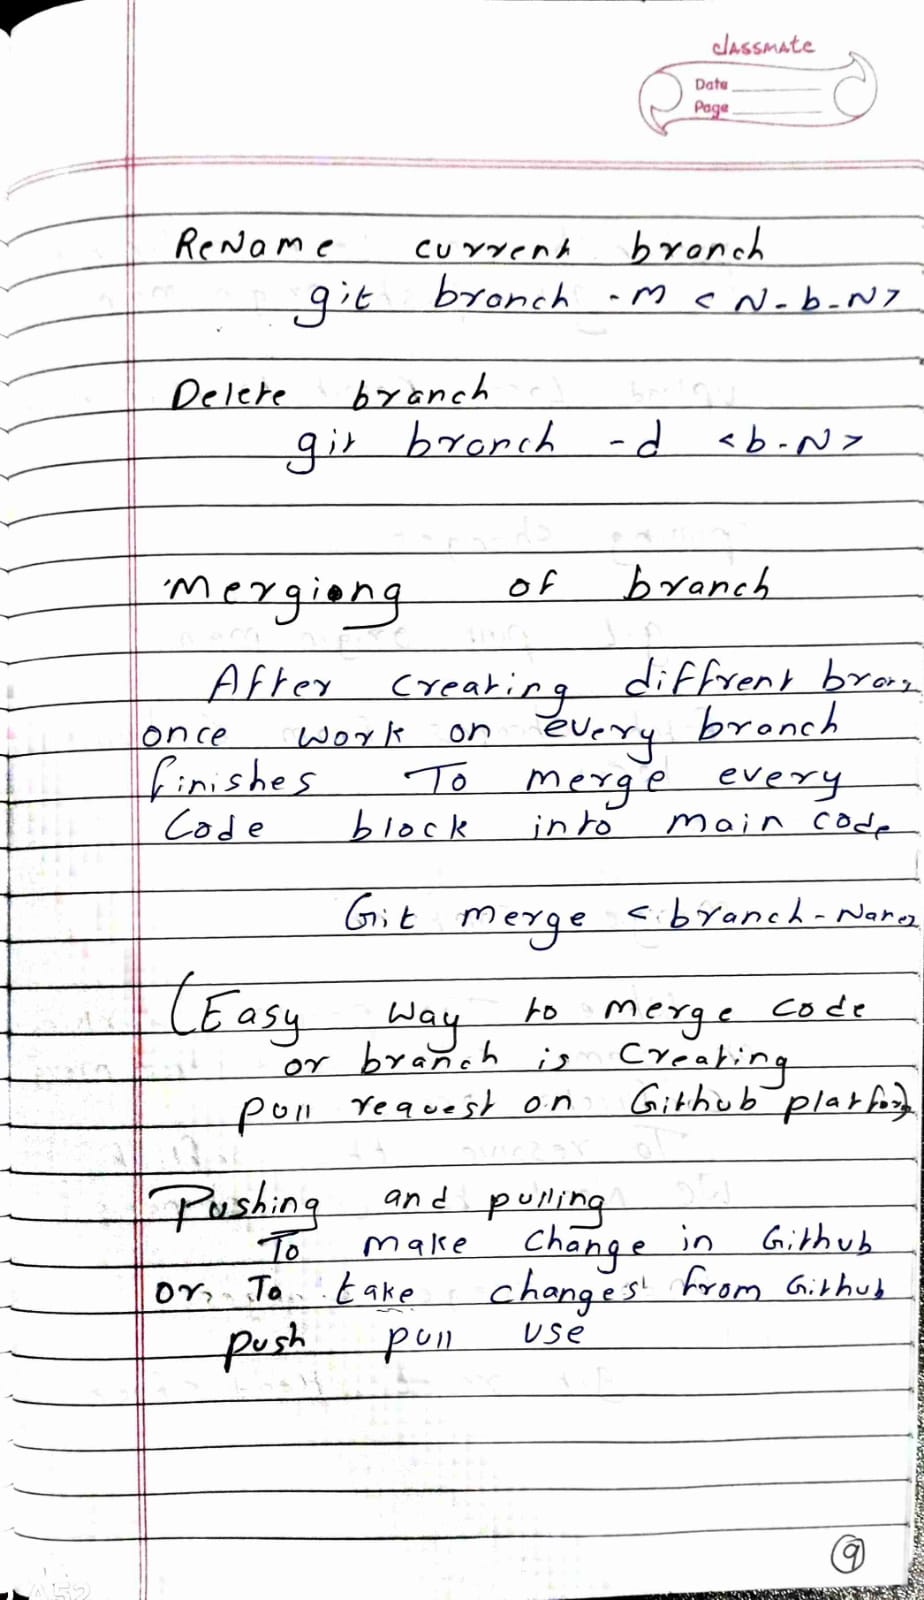 classmate
Date
Page
ReName current branch
git branch -m <N-b-N>
Delete branch
git branch -d <b-N>
Mergiong of branch
After creating diffrent
once work on every branch
finishes To merge every
Code block into main code
Git merge <branch-Name>
(Easy way to merge code
or branch is Creating
pull request on Github platform)
Pushing and pulling
To make change in Github
or To take changes from Github
push pull use
9
A52